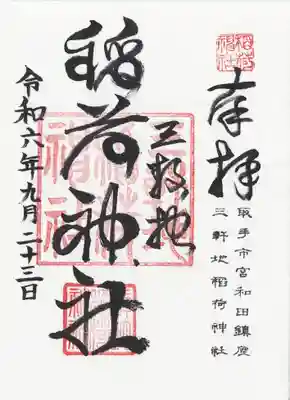 奉拝
取手市宮和田鎮座
三軒地稲荷神社
三軒地
稲荷神社
令和六年九月二十三日